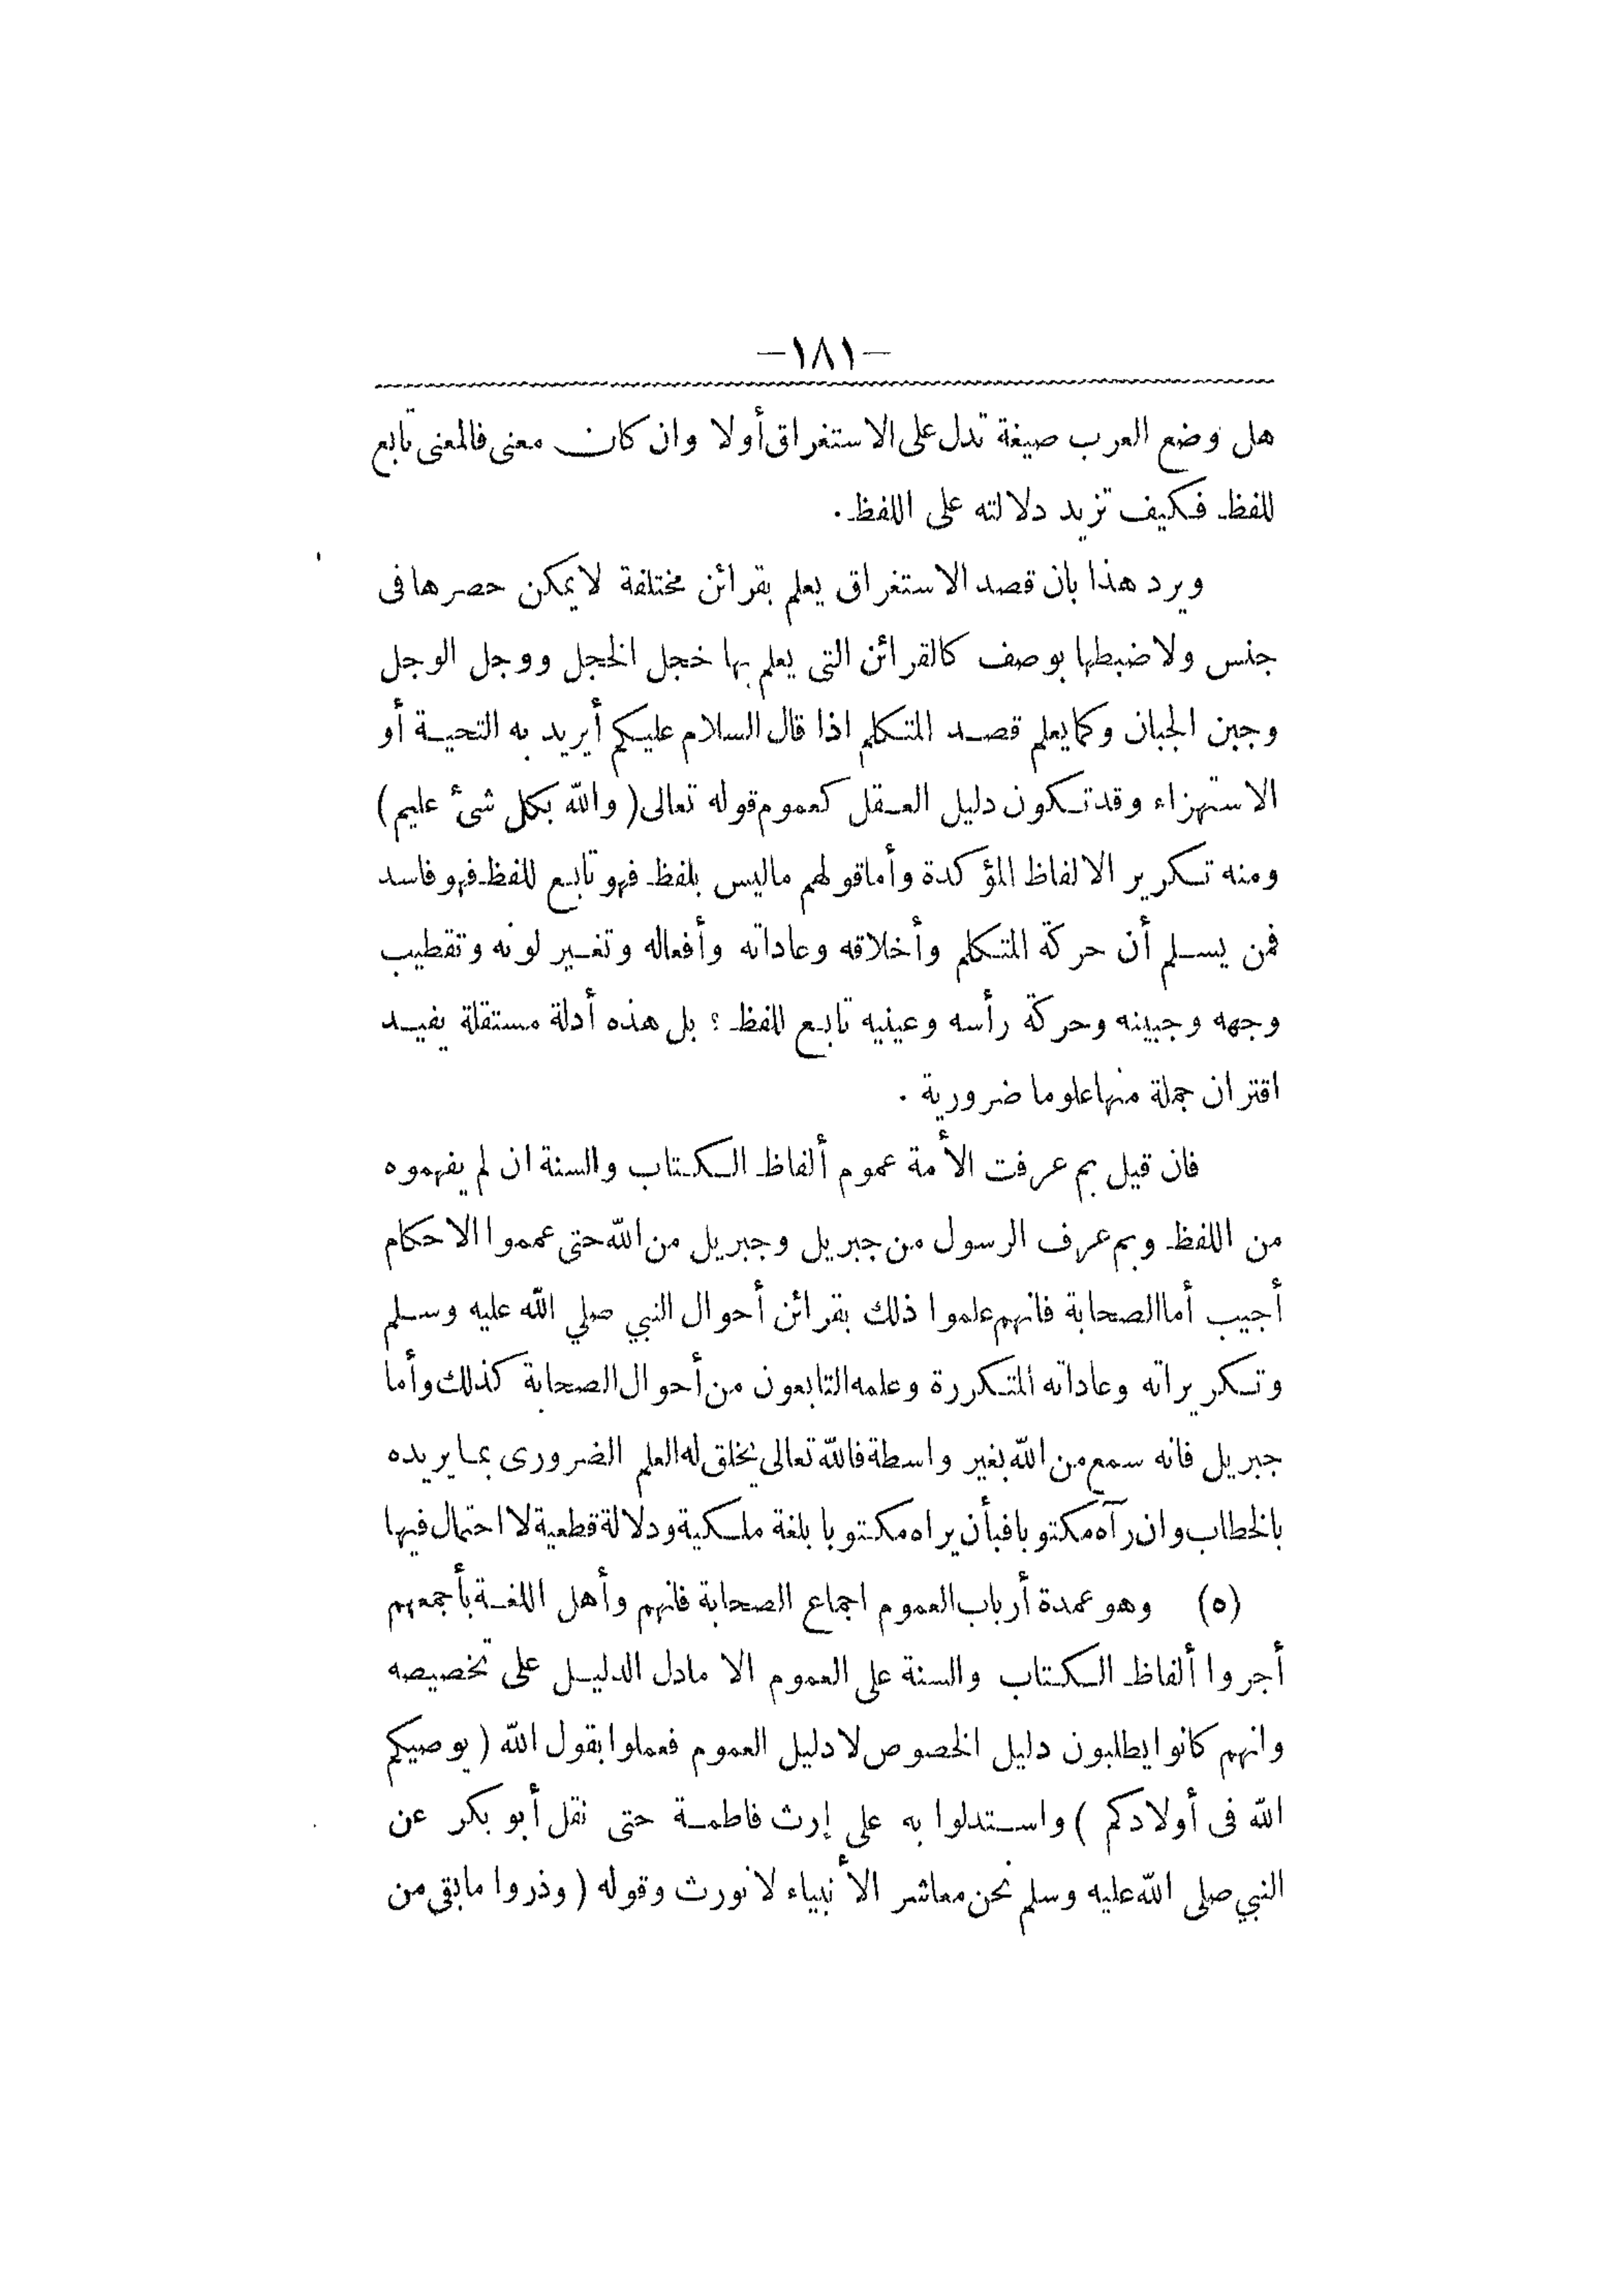 -١٨١-
هل وضع العرب صيغة تدل على الاستغراق أولا وان كان معنى فالمعنى تابع
للفظ فكيف تزيد دلالته على اللفظ.
ويرد هذا بان قصد الاستغراق يعلم بقرائن مختلفة لا يمكن حصرها فى
جنس ولا ضبطها بوصف كالقرائن التى يعلم بها خجل الخجل ووجل الوجل
وجبن الجبان وكما يعلم قصد المتكلم اذا قال السلام عليكم أيريد به التحية أو
الاستهزاء وقد تكون دليل العقل كعموم قوله تعالى (والله بكل شئ عليم)
ومنه تكرير الالفاظ المؤكدة وأما قولهم ماليس بلفظ فهو تابع للفظ فهو فاسد
فمن يسلم أن حركة المتكلم وأخلاقه وعاداته وأفعاله وتغير لونه وتقطيب
وجهه وجبينه وحركة رأسه وعينيه تابع للفظ ؛ بل هذه أدلة مستقلة يفيد
اقتران جملة منها علوما ضرورية .
فان قيل بم عرفت الأمة عموم ألفاظ الكتاب والسنة ان لم يفهموه
من اللفظ وبم عرف الرسول من جبريل وجبريل من الله حتى عمموا الاحكام
أجيب أما الصحابة فانهم علموا ذلك بقرائن أحوال النبي صلي الله عليه وسلم
وتكريراته وعاداته المتكررة وعلمه التابعون من أحوال الصحابة كذلك وأما
جبريل فانه سمع من الله بغير واسطة فالله تعالى يخلق له العلم الضرورى بما يريده
بالخطاب وان رآه مكتوبا فبأن يراه مكتوبا بلغة ملكية ودلالة قطعية لا احتمال فيها
(٥) وهو عمدة أرباب العموم اجماع الصحابة فانهم وأهل اللغة بأجمعهم
أجروا ألفاظ الكتاب والسنة على العموم الا مادل الدليل على تخصيصه
وانهم كانوا يطلبون دليل الخصوص لا دليل العموم فعملوا بقول الله (يوصيكم
الله فى أولادكم ) واستدلوا به على إرث فاطمة حتى نقل أبو بكر عن
النبي صلى الله عليه وسلم نحن معاشر الأنبياء لا نورث وقوله (وذروا ما بقى من